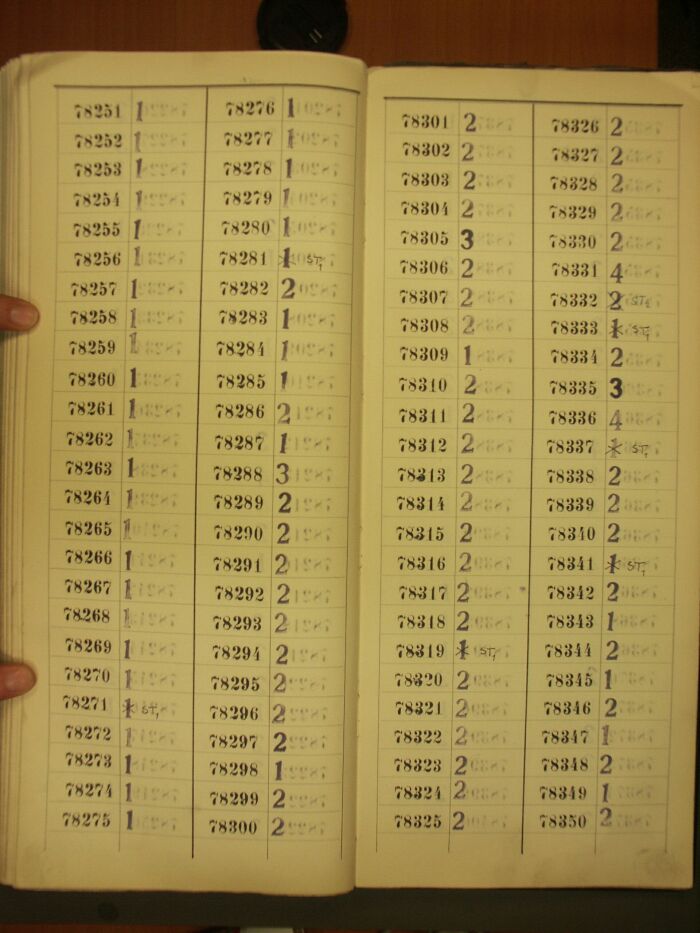 78251 1
78252 1
78253 1
78254 1
78255 1
78256 1
78257 1
78258 1
78259 1
78260 1
78261 1
78262 1
78263 1
78264 1
78265 1
78266 1
78267 1
78268 1
78269 1
78270 1
78271 1 ST,
78272 1
78273 1
78274 1
78275 1
78276 1
78277 1
78278 1
78279 1
78280 1
78281 1 ST,
78282 2
78283 1
78284 1
78285 1
78286 2
78287 1
78288 3
78289 2
78290 2
78291 2
78292 2
78293 2
78294 2
78295 2
78296 2
78297 2
78298 1
78299 2
78300 2
78301 2
78302 2
78303 2
78304 2
78305 3
78306 2
78307 2
78308 2
78309 1
78310 2
78311 2
78312 2
78313 2
78314 2
78315 2
78316 2
78317 2
78318 2
78319 1 ST,
78320 2
78321 2
78322 2
78323 2
78324 2
78325 2
78326 2
78327 2
78328 2
78329 2
78330 2
78331 4
78332 2 ST,
78333 1 ST,
78334 2
78335 3
78336 4
78337 1 ST,
78338 2
78339 2
78340 2
78341 1 ST,
78342 2
78343 1
78344 2
78345 1
78346 2
78347 1
78348 2
78349 1
78350 2